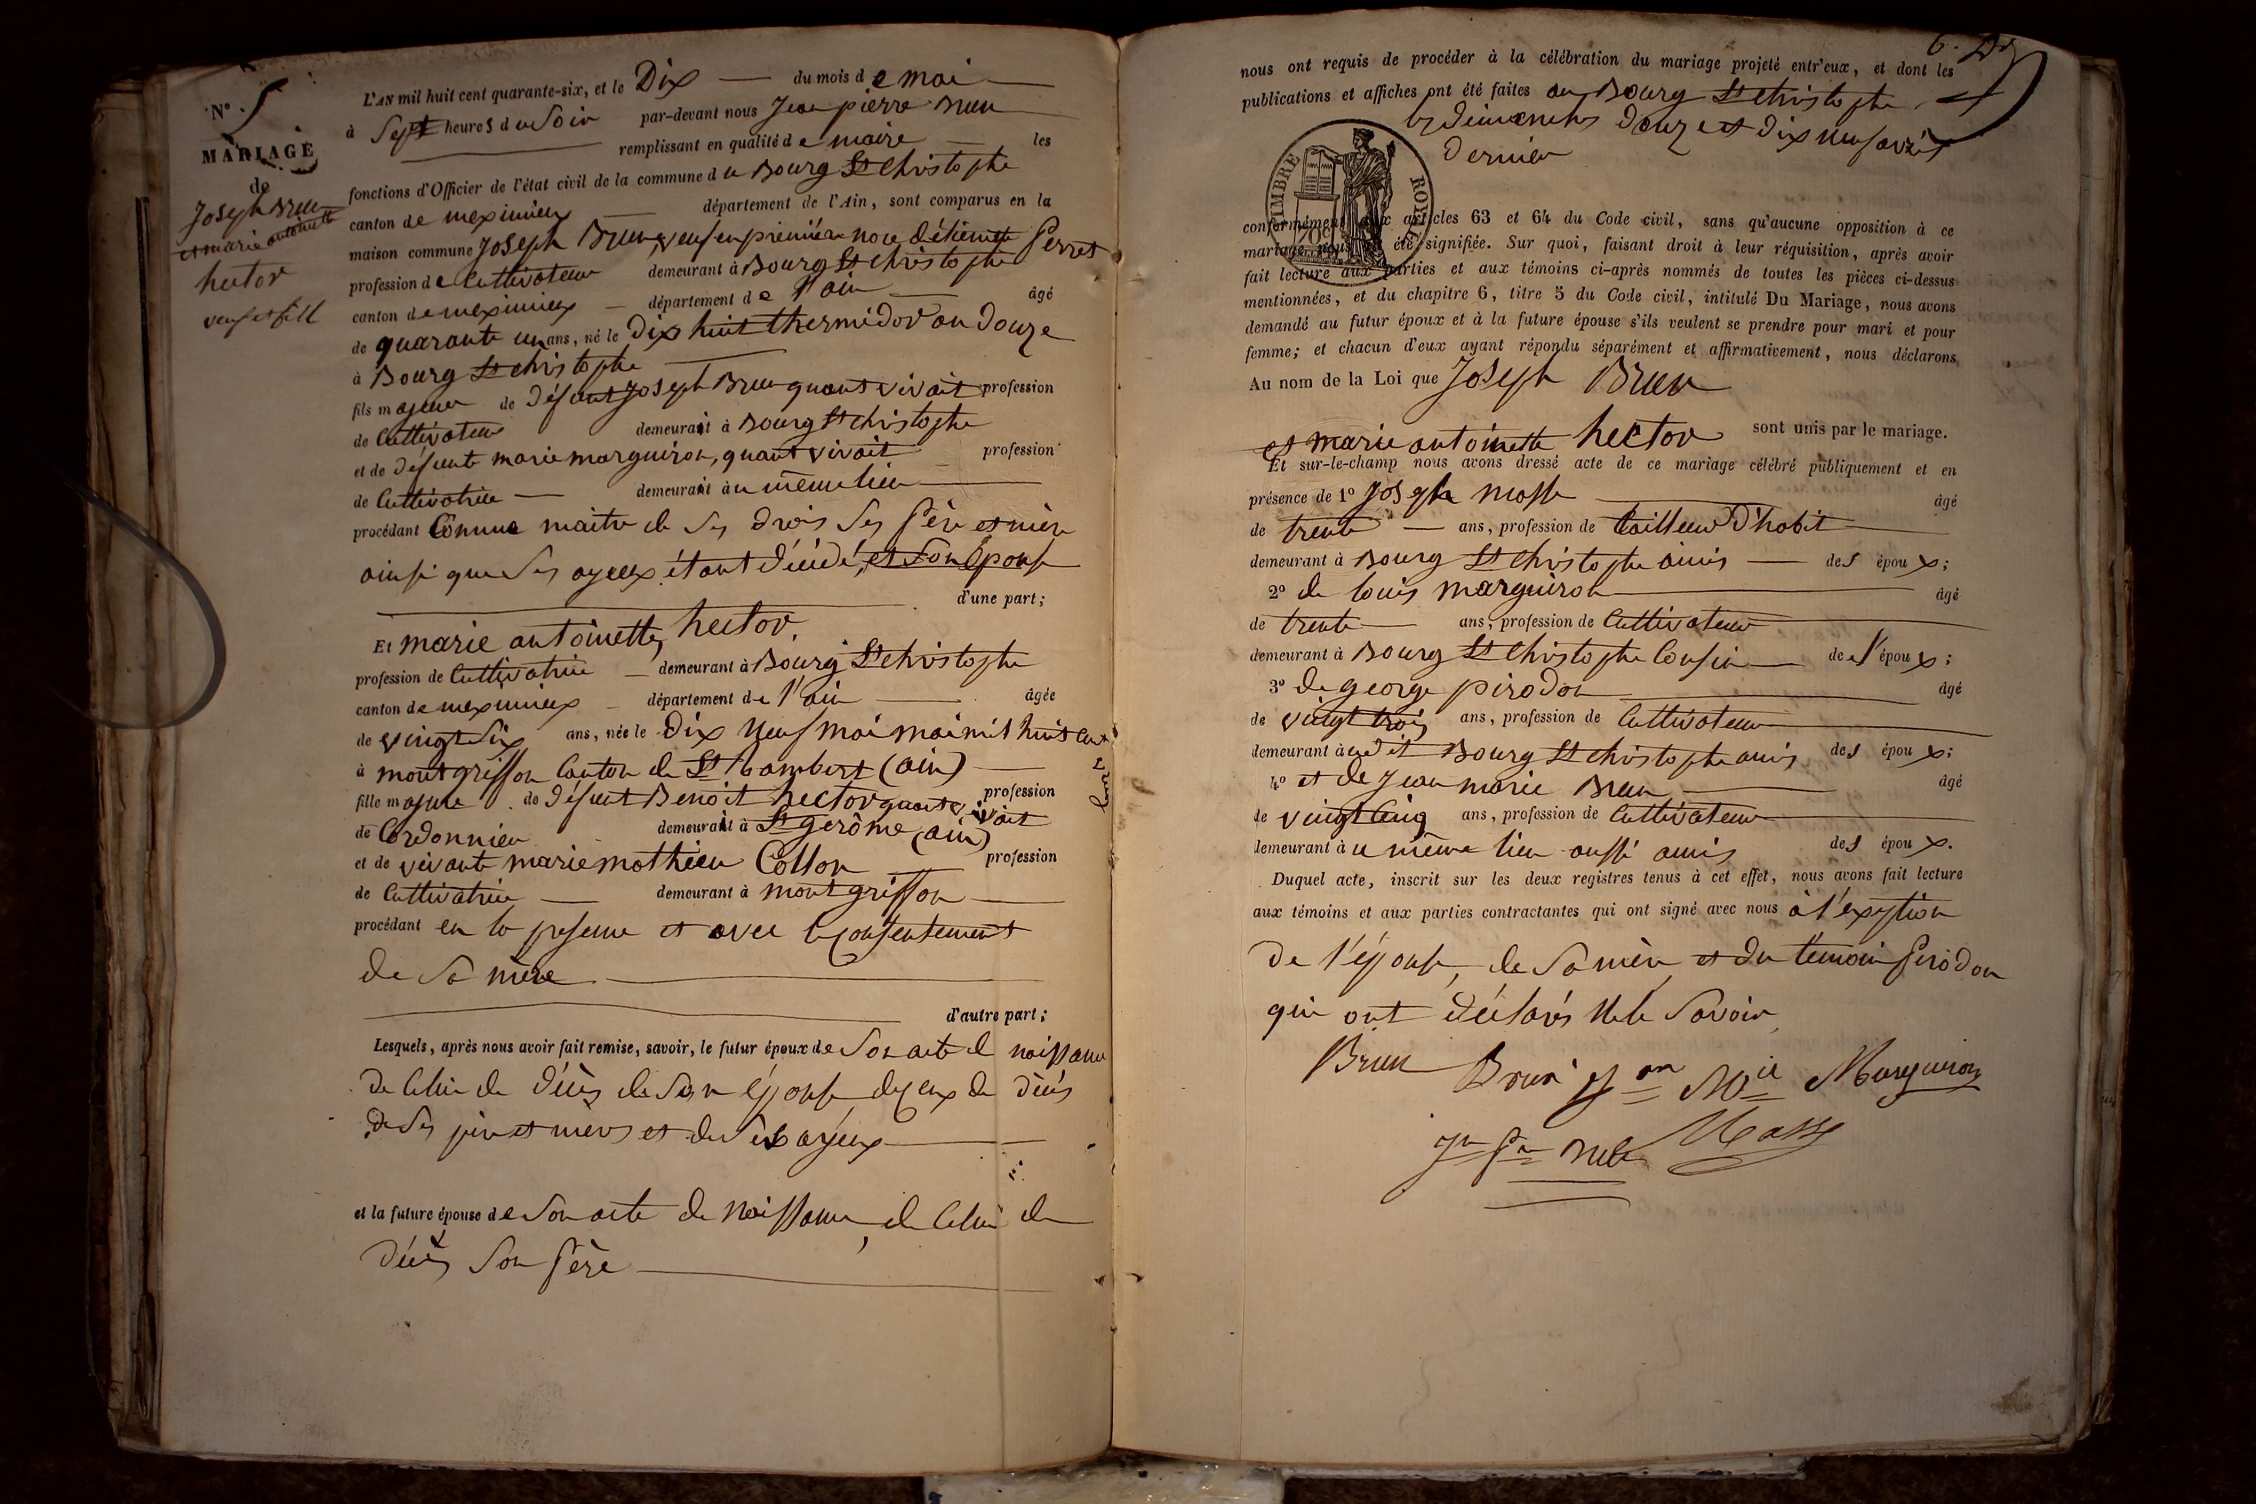 N° 5
MARIAGE
de
Joseph Brun
et marie antoinette
hector
veuf et fille
L'AN mil huit cent quarante-six, et le Dix du mois de mai
à Sept heures du Soir par-devant nous Jean pierre Brun
remplissant en qualité de maire les
fonctions d'Officier de l'état civil de la commune du Bourg St Christophe
canton de meximieux département de l'Ain, sont comparus en la
maison commune Joseph Brun, veuf en première noce d'étiennette Perret
profession de Cultivateur demeurant à Bourg St Christophe
canton de meximieux département de l'ain âgé
de quarante un ans, né le Dix huit thermidor an Douze
à Bourg St Christophe
fils majeur de Défunt Joseph Brun quant vivait profession
de Cultivateur demeurant à Bourg St Christophe
et de Défunte marie marguiron, quant vivait profession
de Cultivatrice demeurant au même lieu
procédant Comme maitre de Ses Drois Ses Père et mère
ainsi que Ses ayeux étant Décédé, et Son Épouse
d'une part;
Et marie antoinette, hector,
profession de Cultivatrice demeurant à Bourg St Christophe
canton de meximieux département de l'ain âgée
de vingt Six ans, née le Dix Neuf mai mil huit Cent
vingt
à montgriffon Canton de St rambert (ain)
fille majeure de Défunt Benoit hector quant vivait profession
de Cordonnier demeurant à St gerôme (ain)
et de vivante marie mathieu Collon profession
de Cultivatrice demeurant à montgriffon
procédant en la presence et avec le Consentement
de Sa mère
d'autre part;
Lesquels, après nous avoir fait remise, savoir, le futur époux de Son acte de naissance
de Celui de Décès de Son épouse de Ceux de Décès
de Ses père et mère et de Ses ayeux
et la future épouse de Son acte de Naissance, de Celui de
Décès Son Père
6.
nous ont requis de procéder à la célébration du mariage projeté entr'eux, et dont les
publications et affiches ont été faites au Bourg St Christophe
les dimanches Douze et Dix neuf avril
Dernier
TIMBRE ROYAL
70c
conformément aux articles 63 et 64 du Code civil, sans qu'aucune opposition à ce
mariage nous ait été signifiée. Sur quoi, faisant droit à leur réquisition, après avoir
fait lecture aux parties et aux témoins ci-après nommés de toutes les pièces ci-dessus
mentionnées, et du chapitre 6, titre 5 du Code civil, intitulé Du Mariage, nous avons
demandé au futur époux et à la future épouse s'ils veulent se prendre pour mari et pour
femme; et chacun d'eux ayant répondu séparément et affirmativement, nous déclarons
Au nom de la Loi que Joseph Brun
et marie antoinette hector sont unis par le mariage.
Et sur-le-champ nous avons dressé acte de ce mariage célébré publiquement et en
présence de 1° Joseph masse âgé
de trente ans, profession de tailleur D'habit
demeurant à Bourg St Christophe amis des époux;
2° de louis marguiron âgé
de trente ans, profession de Cultivateur
demeurant à Bourg St Christophe Cousin de l'époux;
3° de george pirodon âgé
de vingt trois ans, profession de Cultivateur
demeurant audit Bourg St Christophe amis des époux;
4° et de Jean marie Brun âgé
de vingt Cinq ans, profession de Cultivateur
demeurant au même lieu aussi amis des époux.
Duquel acte, inscrit sur les deux registres tenus à cet effet, nous avons fait lecture
aux témoins et aux parties contractantes qui ont signé avec nous à l'exeption
de l'épouse, de Sa mère et du témoin Pirodon
qui ont Déclarés Ne le Savoir
Brun Brun Jn Mie Marguiron
Jn Pre Masse